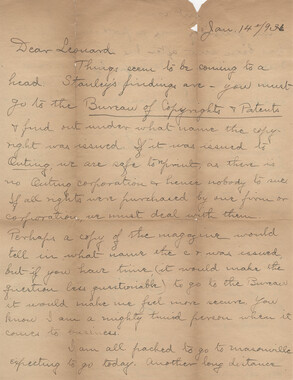 Jan. 14 1931
Dear Leonard
Things seem to be coming to a
head Stanley's findings are - you must
go to the Bureau of Copyrights & Patents
& find out under what name the copy-
right was issued. If it was issued to
Outing we are safe to print as there is
no Outing corporation & hence nobody to sue
If all rights were purchased by some firm or
corporation, we must deal with them.
Perhaps a copy of the magazine would
tell in what name the c.r. was issued,
but if you have time (it would make the
question less questionable) to go to the Bureau
it would make me feel more secure. You
know I am a mighty timid person when it
comes to
I am all packed to go to Masonville
expecting to go today. Another long distance